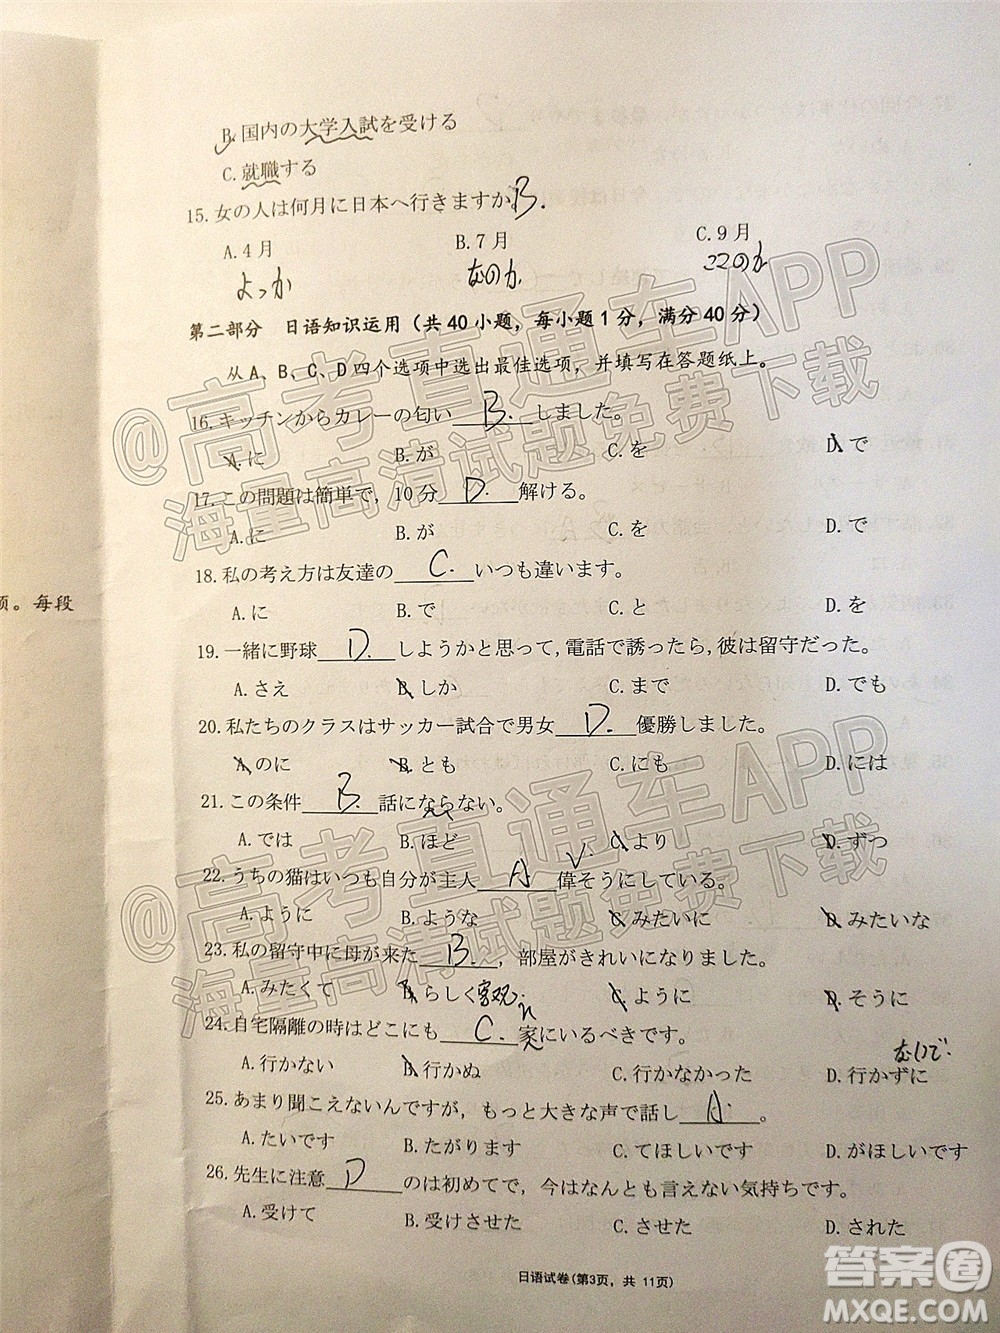 B. 国内の大学入試を受ける
C. 就職する
15. 女の人は何月に日本へ行きますか。B.
A. 4月 B. 7月 C. 9月
よっか なのか ココのか
第二部分 日语知识运用（共40小题，每小题1分，满分40分）
从A、B、C、D四个选项中选出最佳选项，并填写在答题纸上。
16. キッチンからカレーの匂い B. しました。
A. に B. が C. を D. で
17. この問題は簡単で，10分 D. 解ける。
A. に B. が C. を D. で
18. 私の考え方は友達の C. いつも違います。
A. に B. で C. と D. を
项。每段
19. 一緒に野球 D. しようかと思って, 電話で誘ったら, 彼は留守だった。
A. さえ B. しか C. まで D. でも
20. 私たちのクラスはサッカー試合で男女 D. 優勝しました。
A. のに B. とも C. にも D. には
21. この条件 B. 話にならない。
A. では B. ほど C. より D. ずつ
22. うちの猫はいつも自分が主人 A 偉そうにしている。
A. ように B. ような C. みたいに D. みたいな
23. 私の留守中に母が来た B. ，部屋がきれいになりました。
A. みたくて B. らしく C. ように D. そうに
24. 自宅隔離の時はどこにも C. 家にいるべきです。
ないで.
A. 行かない B. 行かぬ C. 行かなかった D. 行かずに
25. あまり聞こえないんですが，もっと大きな声で話し A. 。
A. たいです B. たがります C. てほしいです D. がほしいです
26. 先生に注意 D のは初めてで，今はなんとも言えない気持ちです。
A. 受けて B. 受けさせた C. させた D. された
日语试卷(第3页，共 11页)
@高考直通车APP
海量高清试题免费下载
@高考直通车APP
海量高清试题免费下载
答案圈
MXQE.COM